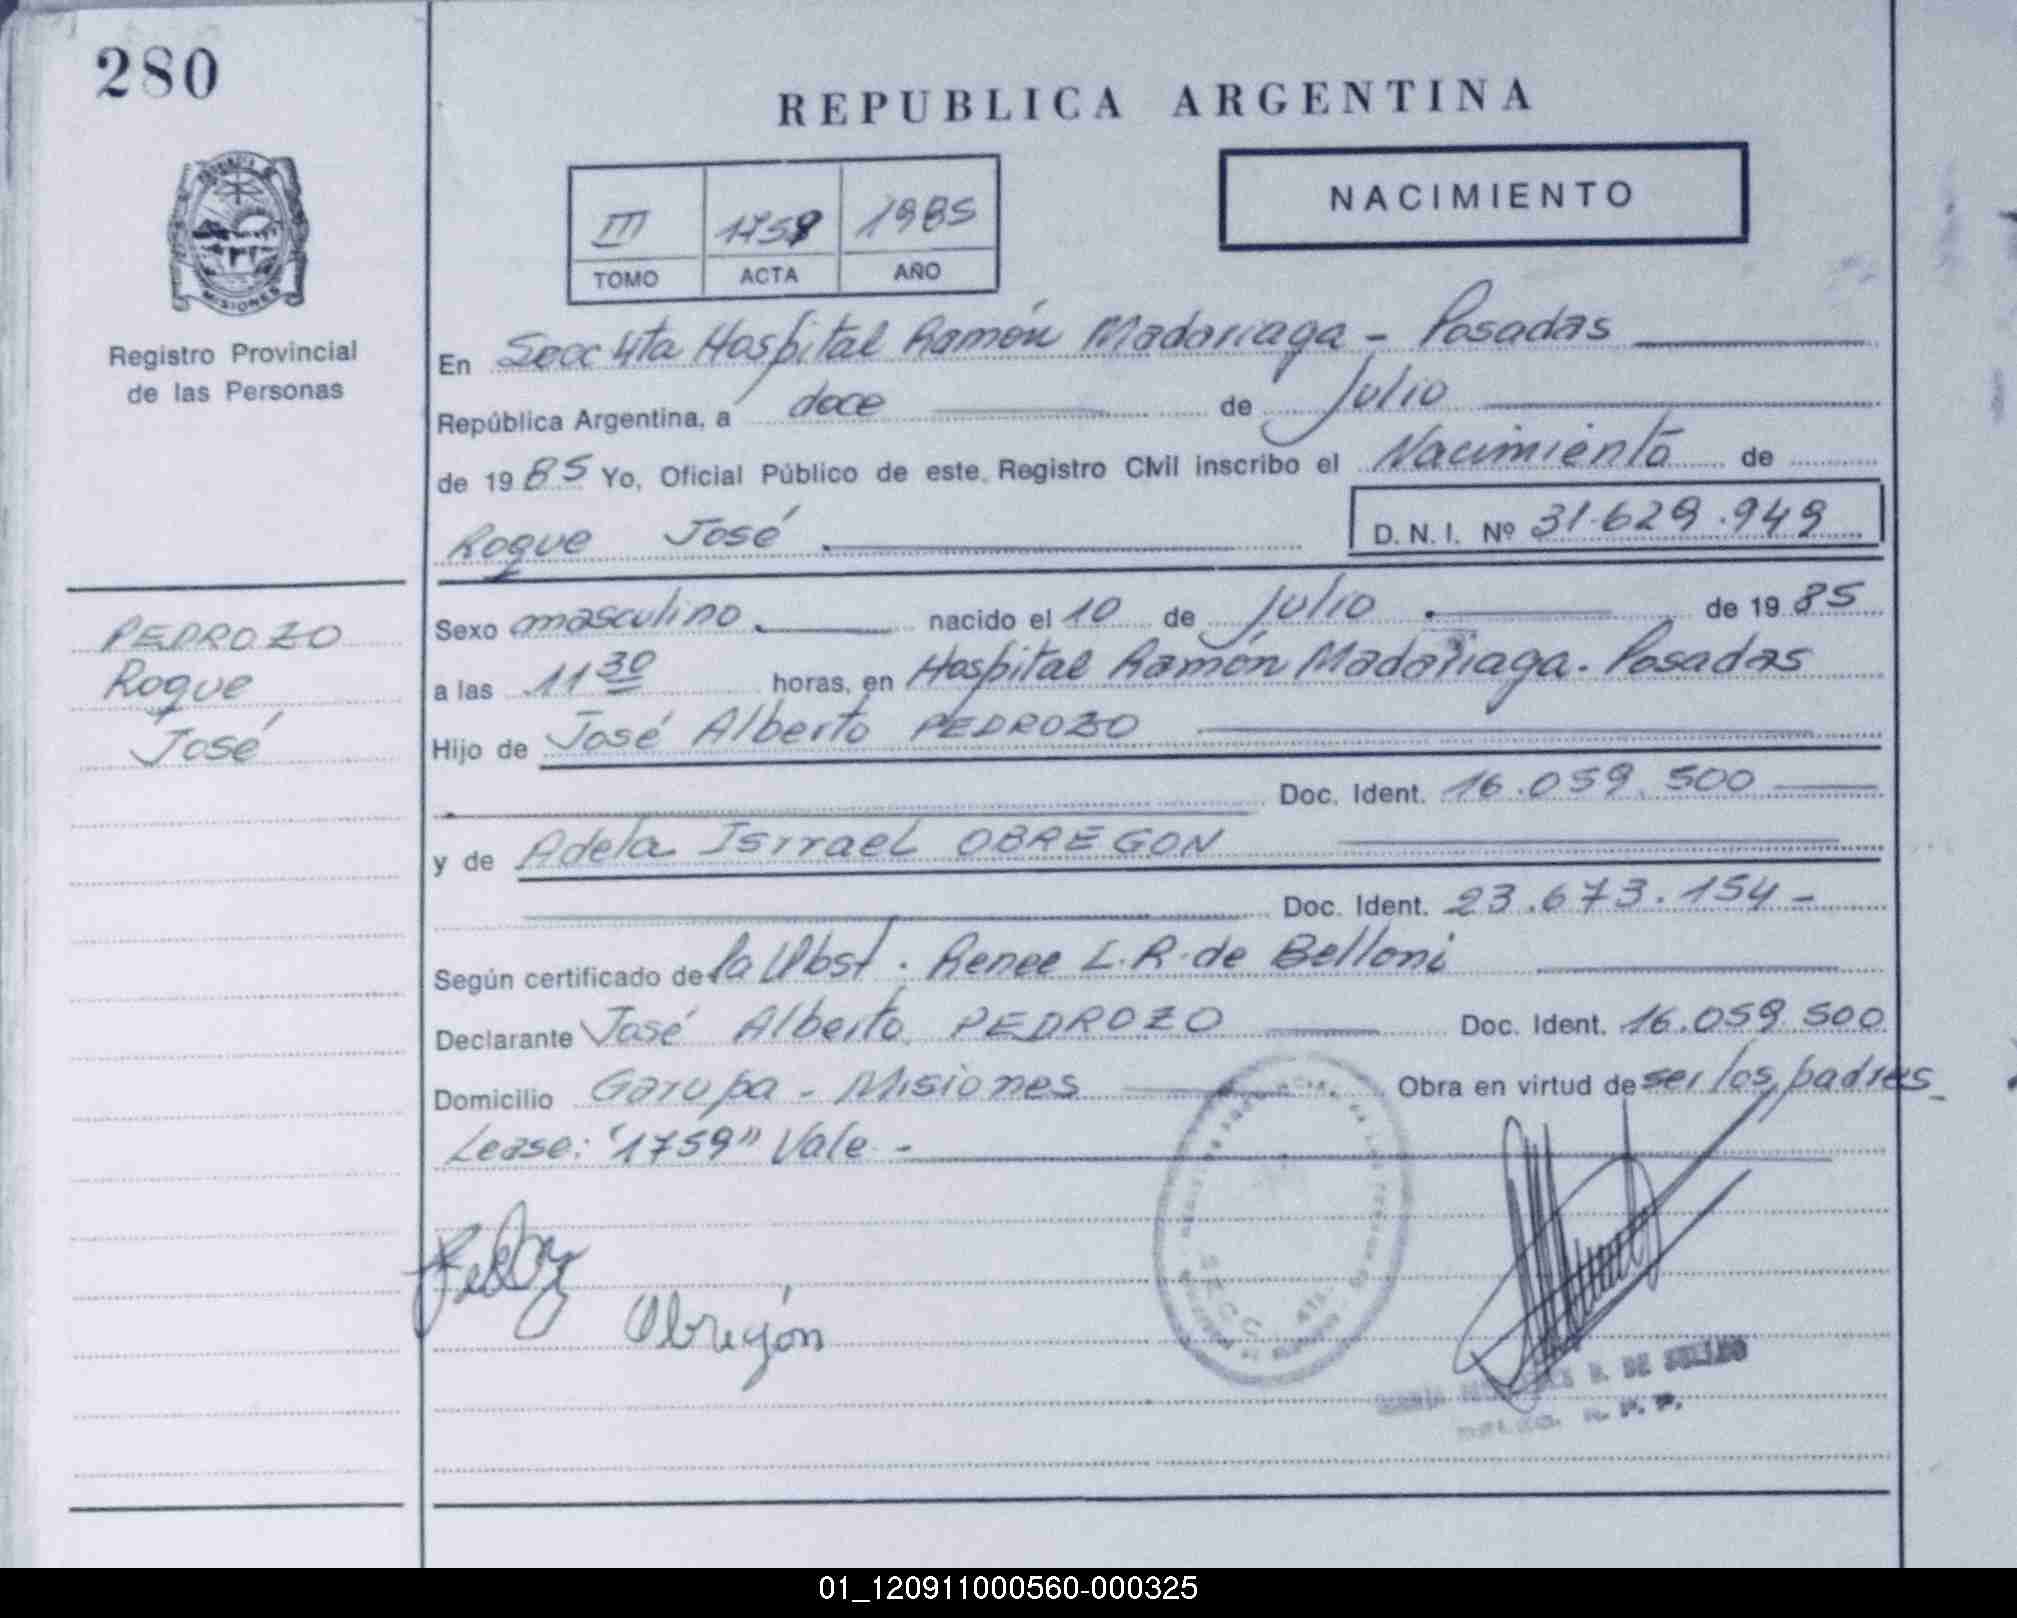 280
REPUBLICA ARGENTINA
NACIMIENTO
III 1759 1985
TOMO ACTA AÑO
MISIONES
Registro Provincial
de las Personas
En Secc 4ta Hospital Ramón Madariaga - Posadas
República Argentina, a doce de Julio
de 1985 Yo, Oficial Público de este Registro Civil inscribo el Nacimiento de
Roque José D. N. I. Nº 31.629.949
PEDROZO
Roque
José
Sexo masculino nacido el 10 de Julio de 1985
a las 11 30 horas, en Hospital Ramón Madariaga. Posadas
Hijo de José Alberto PEDROZO
Doc. Ident. 16.059.500
y de Adela Isrrael OBREGON
Doc. Ident. 23.673.154-
Según certificado de la Obst. Renee L.R. de Belloni
Declarante José Alberto PEDROZO Doc. Ident. 16.059.500
Domicilio Garupa - Misiones Obra en virtud de ser los padres_
Lease: "1759" Vale -
Obregón
SECC. 4ta.
01_120911000560-000325